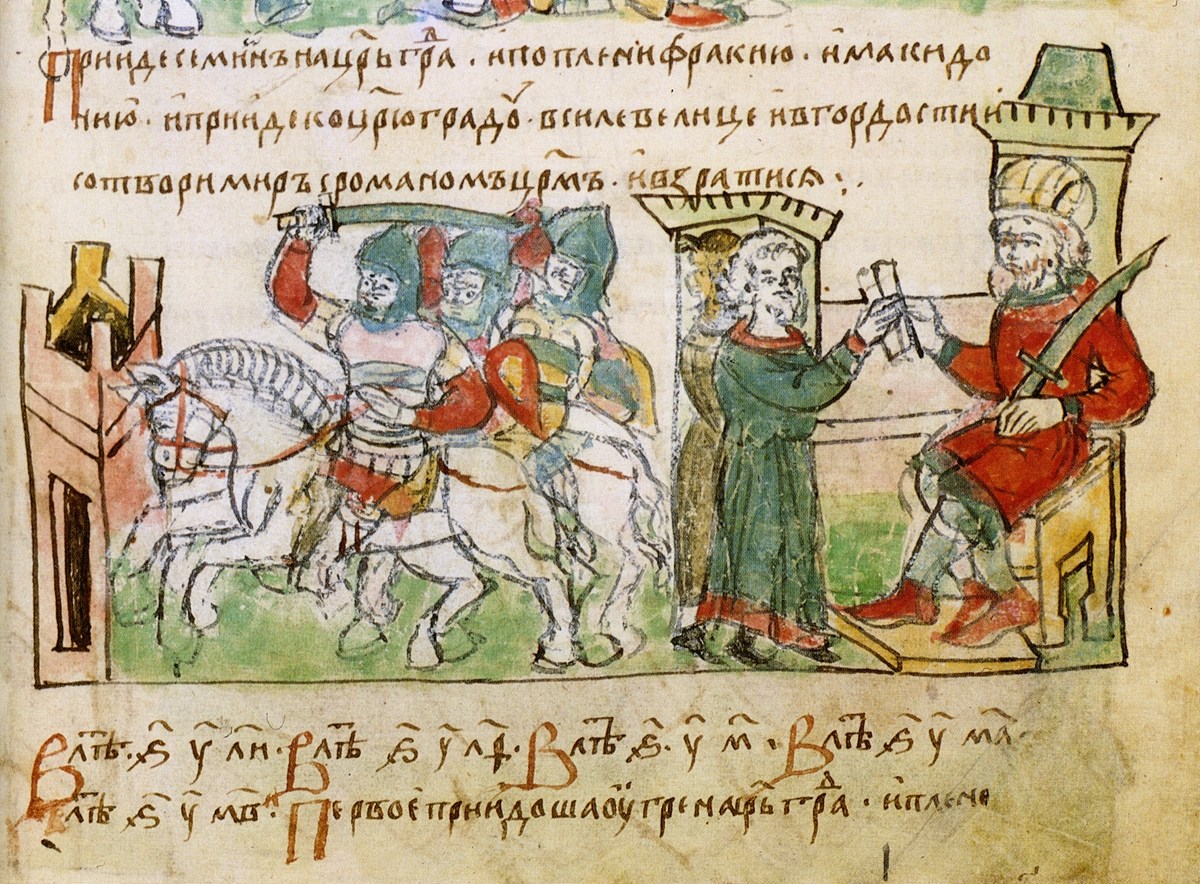 Прииде семиѡнъ на цр҃ьгрⷣа · и поплени фракию · и макидо
нию · и прииде ко цр҃юградѹ · в силе велице и в гордости и
сотвори миръ с романомъ цр҃мъ · и взратися :·
В лѣⷮ · ҂ѕ҃ у҃ л҃и · В лѣⷮ ҂ѕ҃ у҃ л҃ѳ · В лѣⷮ ҂ѕ҃ · у҃ м҃ · В лѣⷮ ҂ѕ҃ у҃ м҃а ·
В лѣⷮ ҂ѕ҃ у҃ м҃в · Первое приидоша оугре на цр҃ьгрⷣа · и плене